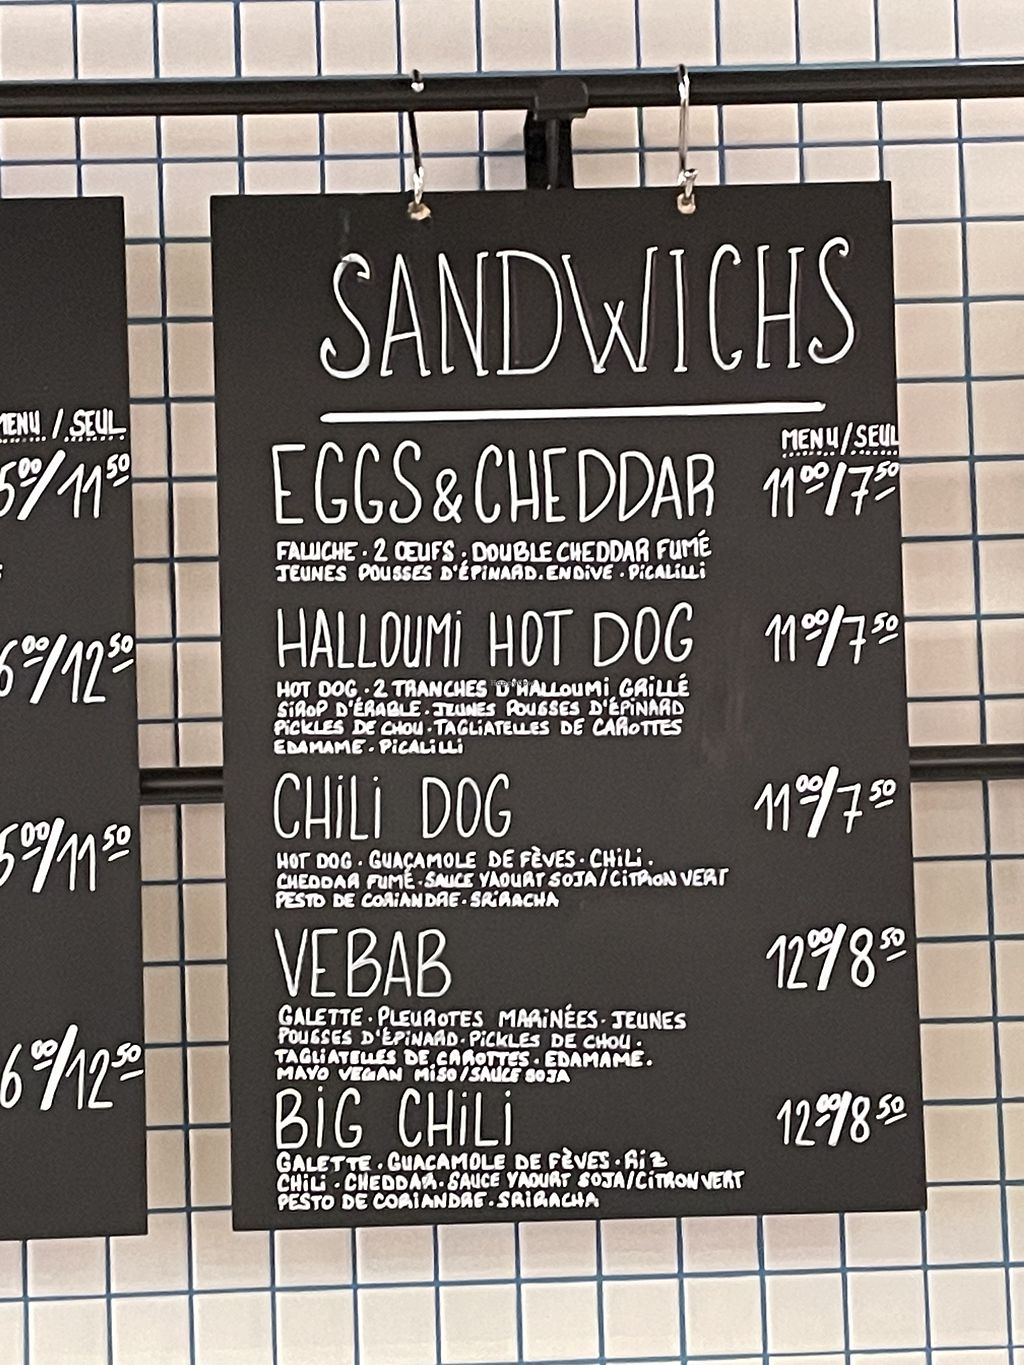 MENU / SEUL
5⁰⁰/11⁵⁰
6⁰⁰/12⁵⁰
5⁰⁰/11⁵⁰
6⁰⁰/12⁵⁰
SANDWICHS
MENU/SEUL
EGGS & CHEDDAR 11⁰⁰/7⁵⁰
FALUCHE · 2 ŒUFS · DOUBLE CHEDDAR FUMÉ
JEUNES POUSSES D'ÉPINARD · ENDIVE · PICALILLI
HALLOUMI HOT DOG 11⁰⁰/7⁵⁰
HOT DOG · 2 TRANCHES D'HALLOUMI GRILLÉ
SIROP D'ÉRABLE · JEUNES POUSSES D'ÉPINARD
PICKLES DE CHOU · TAGLIATELLES DE CAROTTES
EDAMAME · PICALILLI
CHILI DOG 11⁰⁰/7⁵⁰
HOT DOG · GUAÇAMOLE DE FÈVES · CHILI ·
CHEDDAR FUMÉ · SAUCE YAOURT SOJA/CITRON VERT
PESTO DE CORIANDRE · SRIRACHA
VEBAB 12⁰⁰/8⁵⁰
GALETTE · PLEUROTES MARINÉES · JEUNES
POUSSES D'ÉPINARD · PICKLES DE CHOU ·
TAGLIATELLES DE CAROTTES · EDAMAME ·
MAYO VEGAN MISO/SAUCE SOJA
BIG CHILI 12⁰⁰/8⁵⁰
GALETTE · GUACAMOLE DE FÈVES · RIZ
CHILI · CHEDDAR · SAUCE YAOURT SOJA/CITRON VERT
PESTO DE CORIANDRE · SRIRACHA